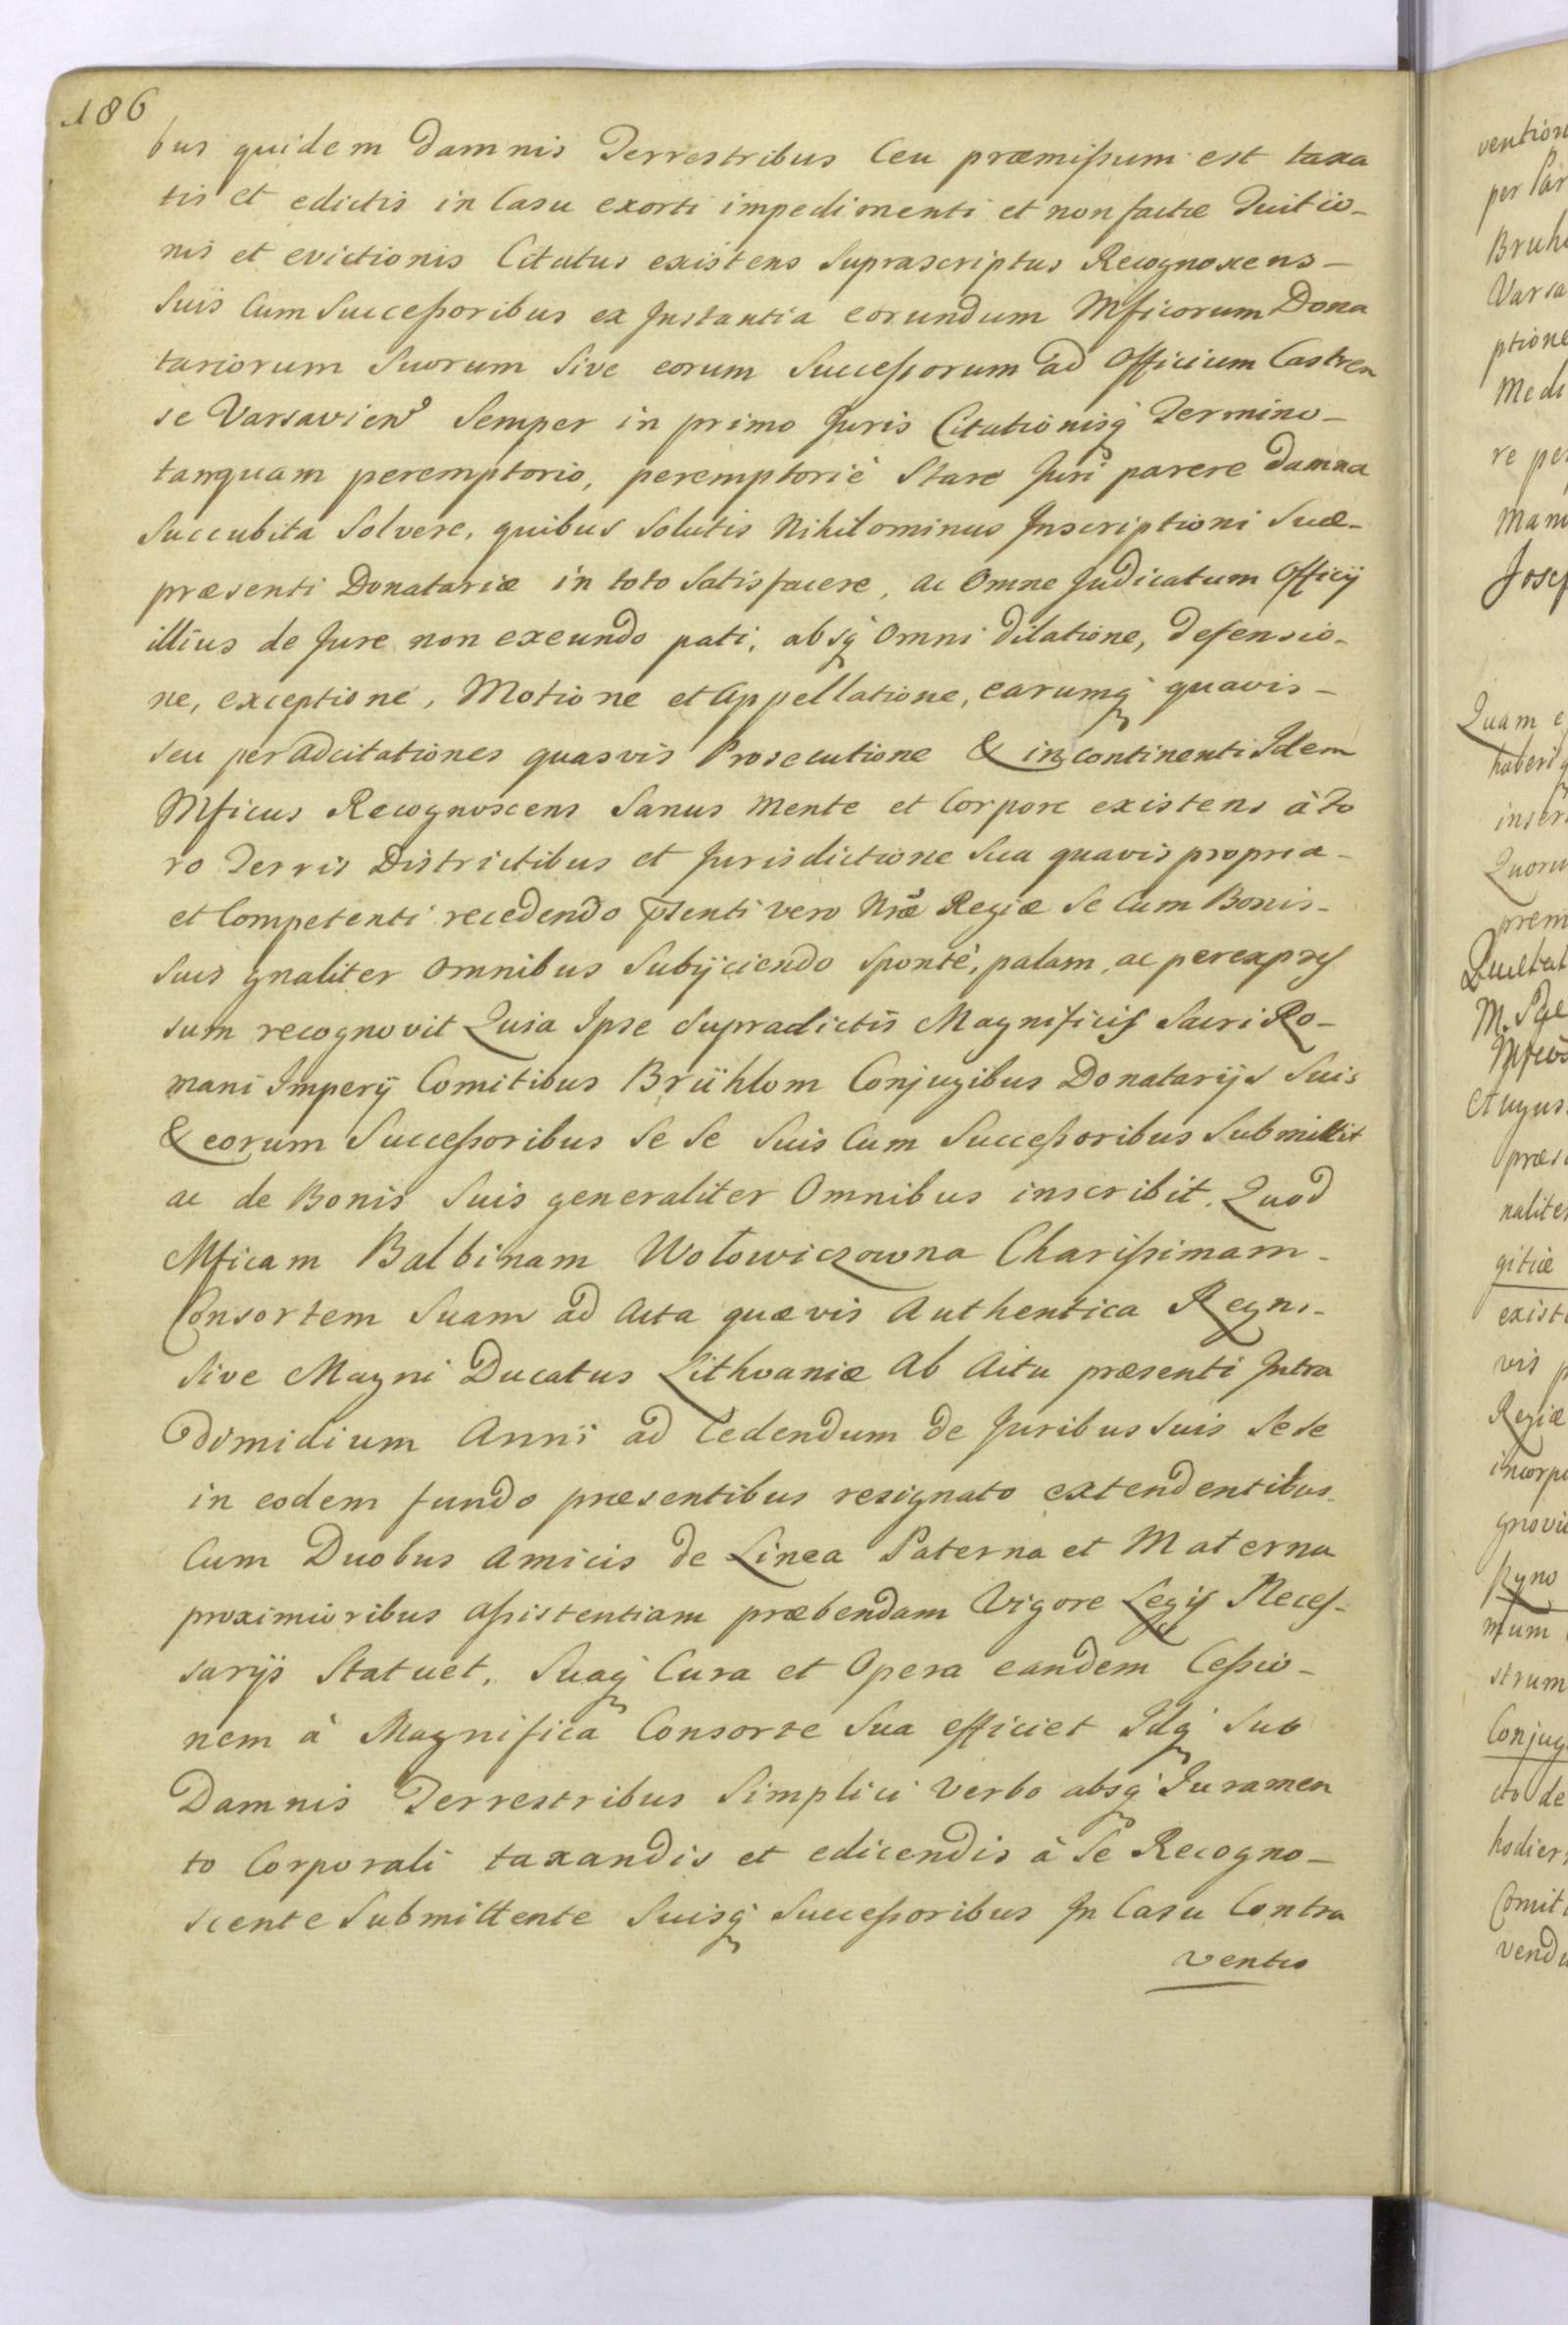 186
bus quidem Damnis Terrestribus Ceu præmissum est taxa
tis et edictis in Casu exorti impedimenti et non factæ Tuitio-
nis et evictionis Citatus existens Suprascriptus Recognoscens-
Suis Cum Successoribus ex Instantia eorundum Mficorum Dona
tariorum Suorum Sive eorum Successorum ad Officium Castren
se Varsavien Semper in primo Juris Citationisq Termino-
tanquam peremptorio, peremptoriè Stare Juri parere Damna
Succubita Solvere, quibus Solutis Nihilominus Inscriptioni Suæ-
præsenti Donatariæ in toto Satisfacere, ac Omne Judicatum Officij
illius de Jure non exeundo pati, absq Omni Dilatione, Defensio-
ne, exceptione, Motione et Appellatione, earumq quavis-
seu per Adcitationes quasvis Prosecutione & in continenti Idem
Mficus Recognoscens Sanus Mente et Corpore existens à Fo
ro Terris Districtibus et Jurisdictione Sua quavis propria-
et Competenti recedendo psenti vero Nræ Regiæ Se Cum Bonis-
Suis gnaliter Omnibus Subijciendo Sponte, palam, ac perexpres
sum recognovit Quia Ipse Supradictis Magnificis Sacri Ro-
mani Imperij Comitibus Brühlom Conjugibus Donatarijs Suis
& eorum Successoribus Se Se Suis Cum Successoribus Submittit
ac de Bonis Suis generaliter Omnibus inscribit. Quod
Mficam Balbinam Wołowiczowna Charissimam-
Consortem Suam ad Acta quævis Authentica Regni-
Sive Magni Ducatus Lithvaniæ Ab Actu præsenti Intra
Dimidium Anni ad Cedendum de Juribus Suis Se se
in eodem fundo præsentibus resignato extendentibus
Cum Duobus Amicis de Linea Paterna et Materna
proximioribus assistentiam præbendam Vigore Legis Neces-
sarijs Statuet, Suaq Cura et Opera eandem Cessio-
nem à Magnifica Consorte Sua efficiet Idq Sub
Damnis Terrestribus Simplici Verbo absq Juramen
to Corporali taxandis et edicendis à Se Recogno-
scente Submittente Suisq Successoribus In Casu Contra
ventio